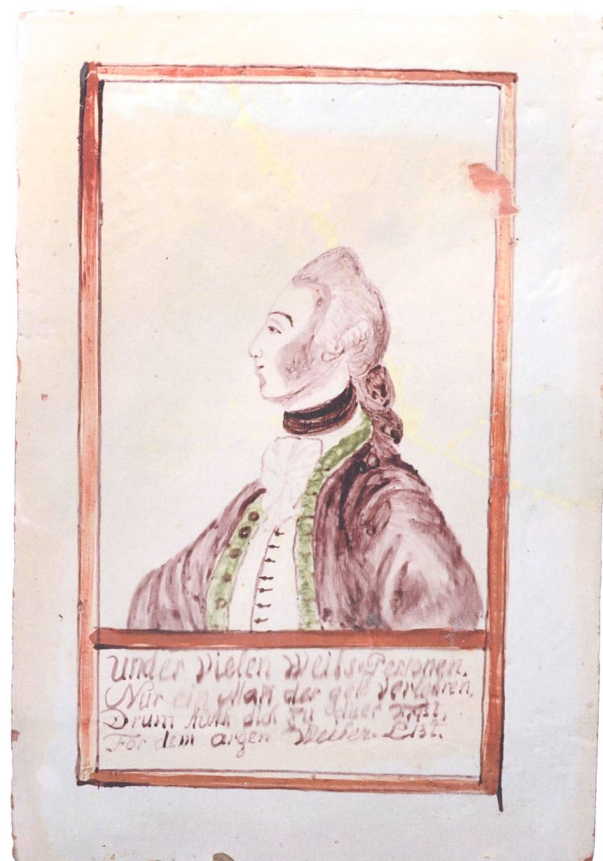 Under Vielen Weibs Personen,
Nur ein Man der geth Verlohren,
Drum dich zu Frist,
For dem argen Weiber List.